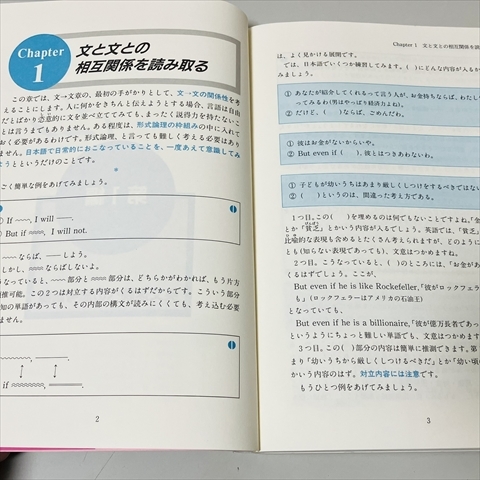 Chapter 1
文と文との
相互関係を読み取る
この章では、文→文章の、最初の手がかりとして、文→文の関係性を考
えることにします。人に何かをきちんと伝えようとする場合、言語は自由
だとばかり恣意的に文を並べて立ててみても、まったく説得力を持たない
とは言うまでもありません。ある程度は、形式論理の枠組みの中に入れて
おく必要があるわけです。形式論理、と言っても難しく考える必要はあり
ません。日本語で日常的におこなっていることを、一度あえて意識してみ
ようとというだけのことです。
ごく簡単な例をあげてみましょう。
① If 〜〜〜, I will ——.
② But if 〜〜〜, I will not.
〜〜〜ならば、——しよう。
しかし、〜〜〜ならばしないよ。
となっていると、〜〜〜部分と〜〜〜部分は、どちらかがわかれば、もう片方
推可能。この２つは対立する内容がくるはずだからです。こういう部分
知の単語があっても、その内部の構文が読みにくくても、考え込む必要
ません。
if
2
Chapter 1 文と文との相互関係を読
は、よく見かける展開です。
では、日本語でいくつか練習してみます。( )にどんな内容が入るか
① あなたが紹介してくれるって言う人が、お金持ちならば、わたし
ってみるわ(男はやっぱり経済力よね)。
② だけど、( )ならば、ごめんだわ。
① 彼はお金がないからいや。
② But even if ( )、彼とはつきあわないわ。
① 子どもが幼いうちはあまり厳しくしつけをするべきではない
② ( )というのは、間違った考え方である。
１つ目。この( )を埋めるのは何でもないことですよね。「金
とか「貧乏」とかいう内容が入るでしょう。英語では、「貧乏」
比喩的な表現も含めるとたくさん考えられますが、どのように
とも(知らない表現であっても)、文意はつかめますね。
２つ目。こうなっていると、( )のところには、「お金があ
くるはずでしょう。ここが、
But even if he is like Rockefeller,「彼がロックフェ
も」(ロックフェラーはアメリカの石油王)
となっていても、
But even if he is a billionaire,「彼が億万長者であっ
というようにちょっと難しい単語でも、文意はつかめます
３つ目。この( )部分の内容は簡単に推測できます。第
まり「幼いうちから厳しくしつけるべきだ」とか「幼い頃の
かいう内容のはず。対立内容には注意です。
もうひとつ例をあげてみましょう。
3